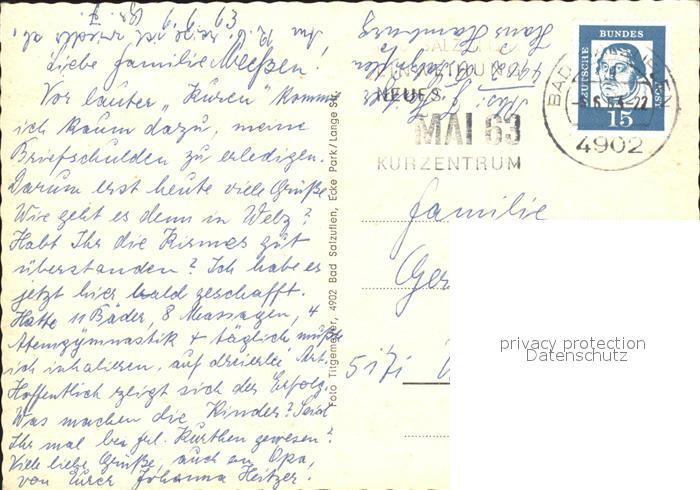 Liebe Familie Meeßen!
Vor lauter „Kuren" komme
ich kaum dazu, meine
Briefschulden zu erledigen.
Darum erst heute viele Grüße.
Wie geht es denn in Welz?
Habt Ihr die Kirmes gut
überstanden? Ich habe es
jetzt hier bald geschafft.
Hatte 11 Bäder, 8 Massagen, 4
Atemgymnastik + täglich mußte
ich inhalieren, auf dreierlei Art.
Hoffentlich zeigt sich der Erfolg.
Was machen die Kinder? Seid
Ihr mal bei Frl. Kürthen gewesen?
Viele liebe Grüße, auch an Opa,
von Eurer Johanna Heitzer.
Foto Titgemeyer, 4902 Bad Salzuflen, Ecke Park/Lange Str.
NEUES
MAI 63
KURZENTRUM
DEUTSCHE BUNDESPOST
15
BAD
4902
Familie
5171
privacy protection
Datenschutz